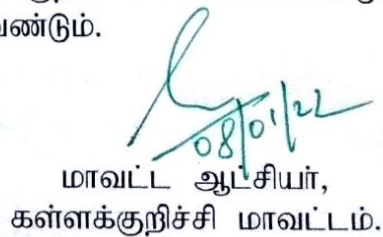 வேண்டும்.
08/01/22
மாவட்ட ஆட்சியர்,
கள்ளக்குறிச்சி மாவட்டம்.